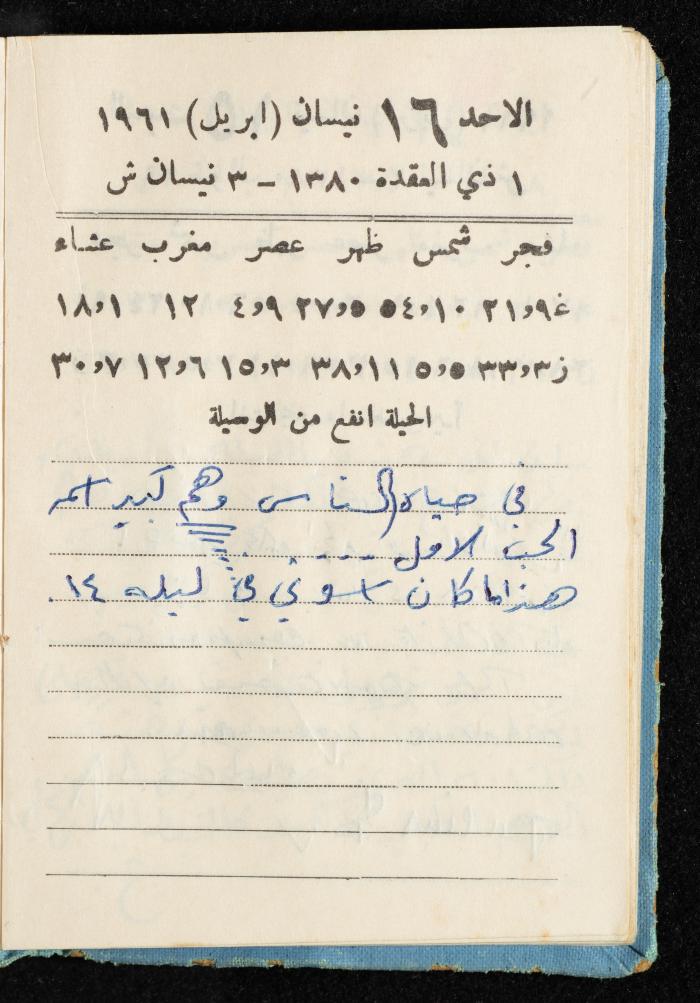 الاحد ١٦ نيسان (ابريل) ١٩٦١
١ ذي العقدة ١٣٨٠ – ٣ نيسان ش
فجر شمس ظهر عصر مغرب عشاء
غ ٩و٢١ ١٠و٥٤ ٥و٢٧ ٩و٤ ١٢ ١و١٨
ز ٣و٣٣ ٥و٥ ١١و٣٨ ٣و١٥ ٦و١٢ ٧و٣٠
الحيلة انفع من الوسيلة
في حياه الناس وهم كبير اسمه
الحب الاول ....
هذا ما كان في ليله ١٤